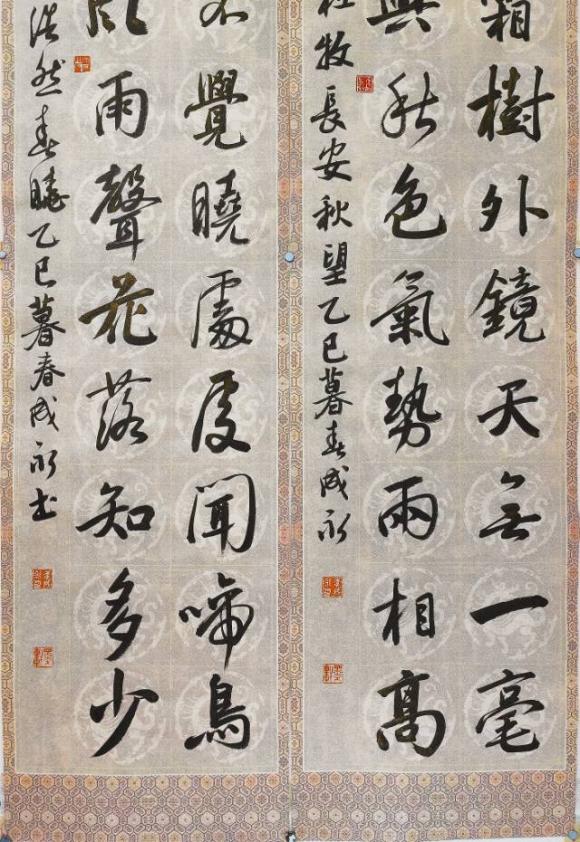 霜樹外鏡天無一毫
與秋色氣勢兩相高
杜牧長安秋望乙巳暮春成永
不覺曉處處聞啼鳥
風雨聲花落知多少
浩然春曉乙巳暮春成永書